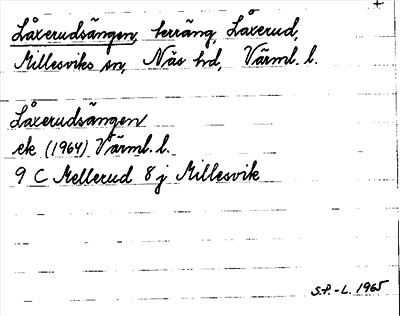 +
Låxerudsängen, terräng, Låxerud,
Millesviks sn, Näs hd, Värml. l.
Låxerudsängen
ek (1964) Värml. l.
9 C Mellerud 8 j Millesvik
S.P.-L. 1965